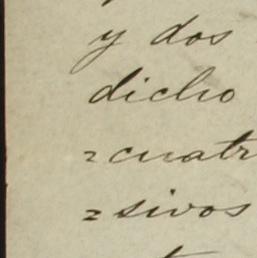 y dos
dicho
=cuatr
=sivos